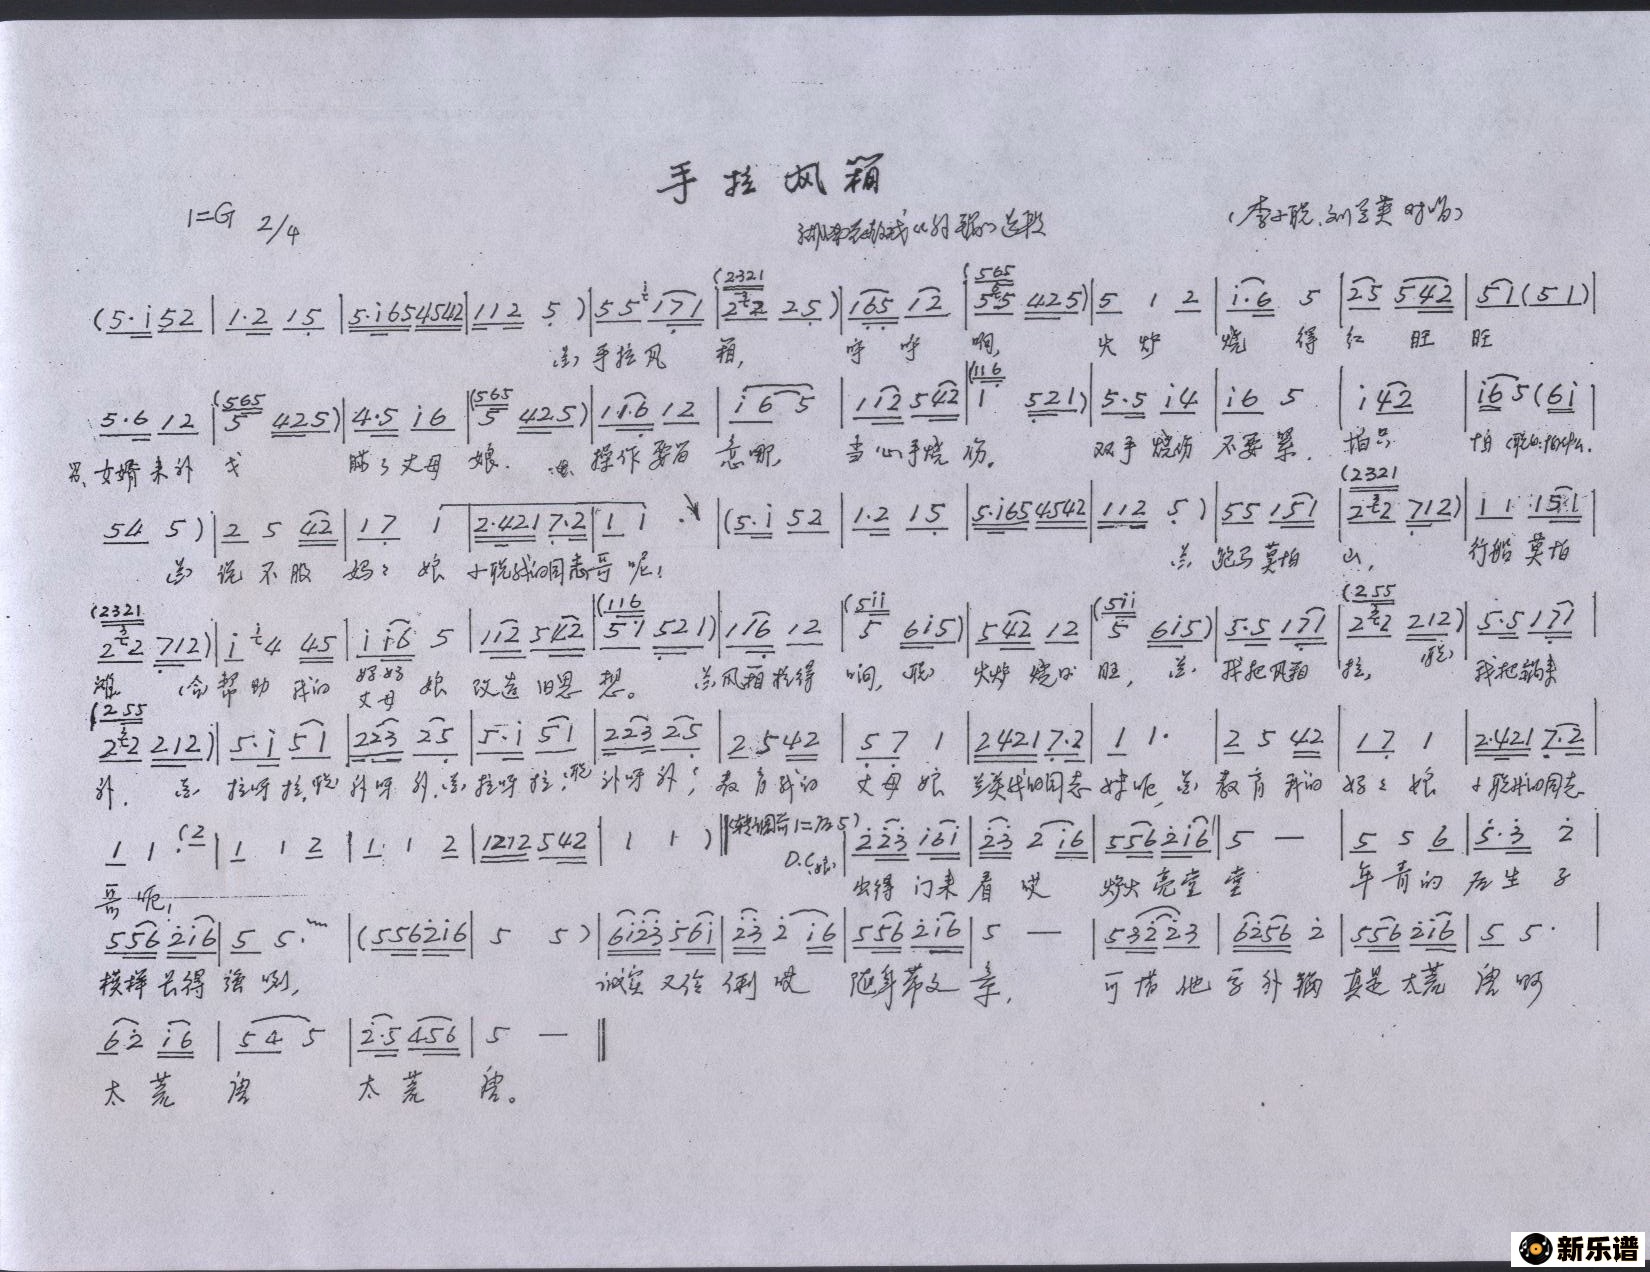 手拉风箱
1=G 2/4
湖南花鼓戏《补锅》选段
(李小聪、刘兰英对唱)
(2321 (565
(5·i52|1·2 15|5·i654542|112 5)|55 171|2 2 25)|165 12|5 5 425)|5 1 2|i·6 5|25 5·42|51(51)|
手拉风 箱, 呼 呼 响, 火 炉 烧 得 红 旺 旺
(565 (565 (116
5·6 12|5 425)|4·5 i6|5 425)|11·6 12|i 6 5|112 542|1 521)|5·5 i4|i6 5|i42|i65(6i|
女婿来补 瞒了丈母 娘. 操作要 意哪, 当心手烧 伤。 双手烧伤 不要紧. 怕只 怕
(2321
54 5)|2 5 42|17 1|2·421 7·2|1 1·|(5·i 52|1·2 15|5·i654542|112 5)|55 151|2 2 712)|11 151|
说 不服 妈 娘 我的同志哥 呢! 跑马莫怕 山, 行船莫怕
(2321 (116 (5ii (5ii (255
2 2 712)|i 4 45|i i6 5|112 542|51 521)|116 12|5 6i5)|542 12|5 6i5)|5·5 171|2 2 212)|5·5 171|
滩 帮助 我的 丈母 娘 改造旧思 想。 风箱拉得 响, 火炉 烧 旺, 我把风箱 拉, 我把锅来
(255
2 2 212)|5·i 51|223 25|5·i 51|223 25|2·542|57 1|2421 7·2|1 1·|2 5 42|17 1|2·421 7·2|
补. 拉呀拉, 补呀补, 拉呀拉, 补呀补; 教育我的 丈母 娘 我的同志 妹呢, 教育 我的 娘 我的同志
1 1·(2|1 1 2|1· 1 2|1212 542|1 1)‖(转调前1=后5) 223 i6i|23 2 i6|556 2i6|5 —|5 5 6|5·3 2|
D.C.
哥呢! 出得 门来 看 哎 炉火 亮堂 堂 年青的 后生 子
556 2i6|5 5·|(5562i6|5 5)|6i23 56i|23 2 i6|556 2i6|5 —|53223|6256 2|556 2i6|5 5·|
模样 长得 强 咧, 诚实 又伶 俐 哎 随身带文 章, 可惜 他 学补锅 真是太荒 唐 啊
62 i6|54 5|2·5 456|5 —‖
太 荒 唐 太 荒 唐。
新乐谱